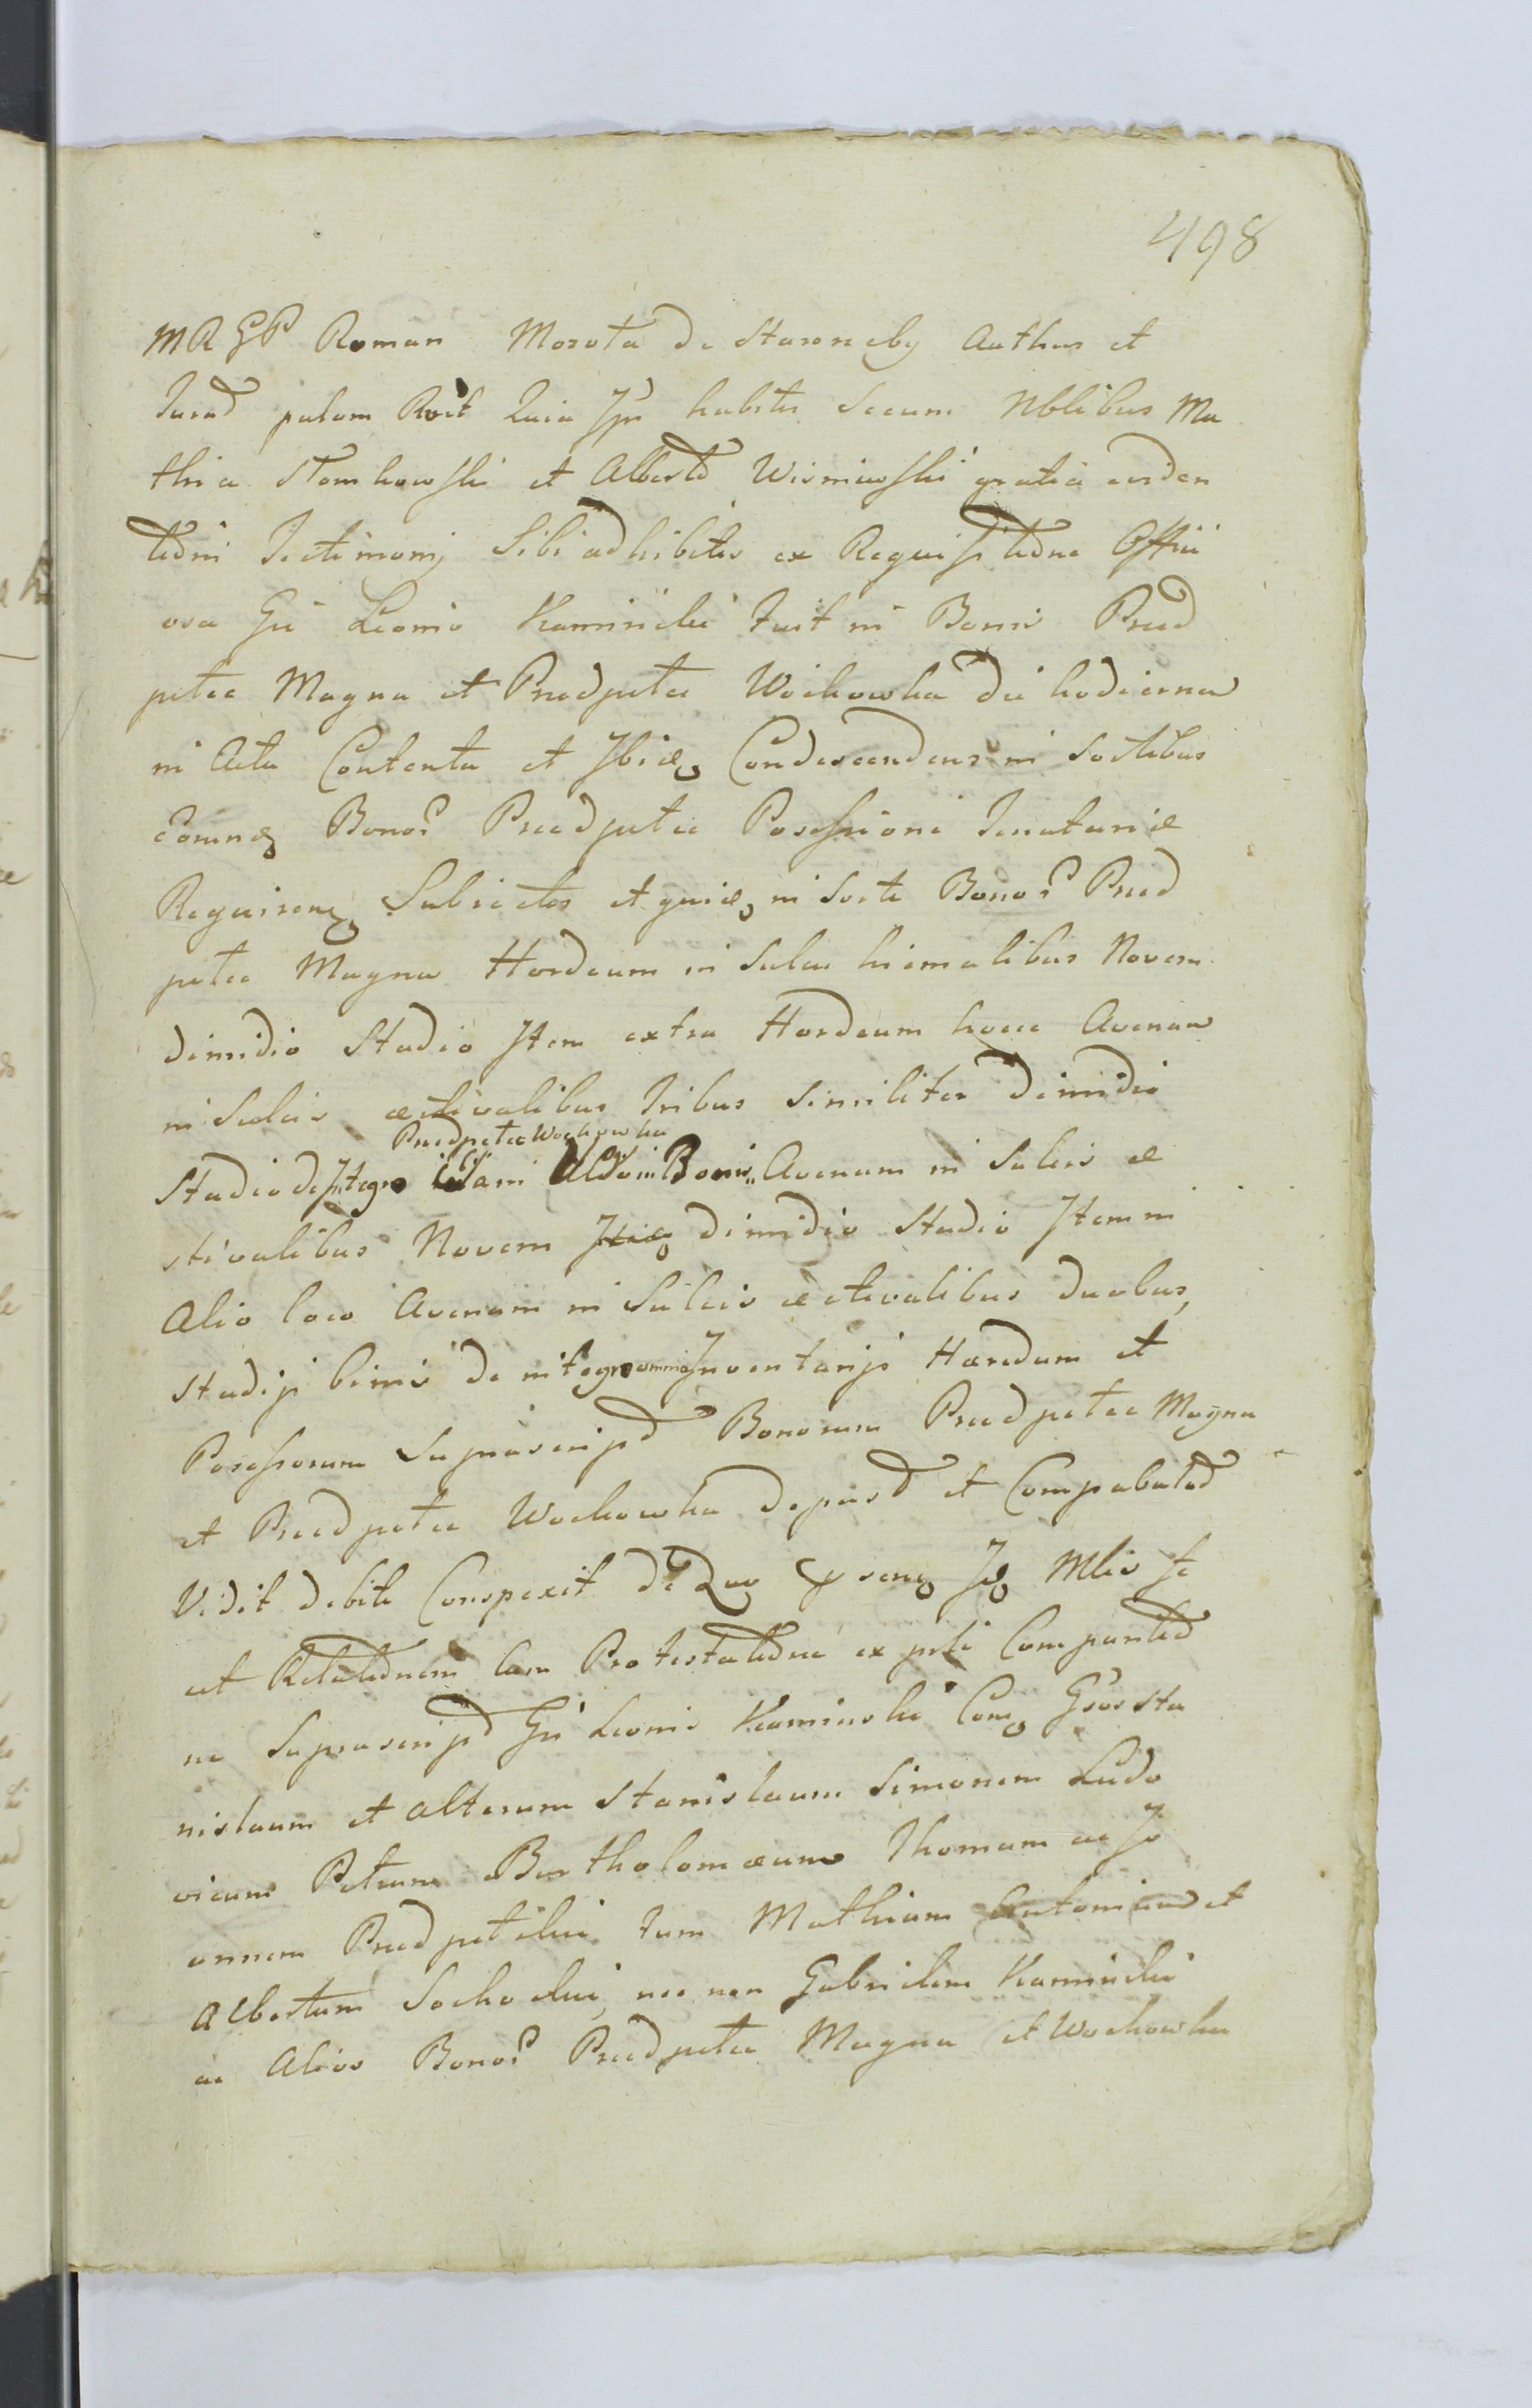 498
MRGP Roman Morota de Staroneby Authus et
Jurad palam Rcit Quia Ipse habitis Secum Nblibus Ma
thia Stomkowski et Albertd Wisniewski gratia eviden
tioris Testimonij Sibi adhibitis ex Requisitione Offici
osa Gsi Leonis Kaminski Fuit in Bonis Pred
petce Magna et Predpetce Wochowka die hodierna
in Actu Contenta et Ibiq Condescendens in Sortibus
Eorumq Bonor Predpetce Possessioni Tenutariæ
Requirenq Subiectis et quiq in Sorte Bonor Pred
petce Magna Hordeum in Sulcis hiemalibus Novem
dimidio Stadio Item extra Hordeum hocce Avenam
in Sulcis æstivalibus Tribus Similiter dimidio
Predpetce Wochowka
Stadio de Integro in Bonis Avenam in Sulcis æ
stivalibus Novem dimidio Stadio Item in
Alio loco Avenam in Sulcis æstivalibus duobus,
Stadijs binis de integro omnia Inventarijs Hæredum et
Possessorum Suprascripd Bonorum Predpetce Magna
et Predpetce Wochowka depasd et Compabulatd
Vidit debite Conspexit de Quo
et Relationem Cum Protestatione ex prte Comparitio
ne Suprascripd Gsi Leonis Kaminski Com Gsos Sta
nislaum et Alterum Stanislaum Simonem Ludo
vicum Petrum Bartholomæum Thomam ac Jo
annem Predpetski tum Mathiam Antonium et
Albertum Sochocki, nec non Gabrielem Kaminski
ac Alios Bonor Predpetce Magna et Wochowka